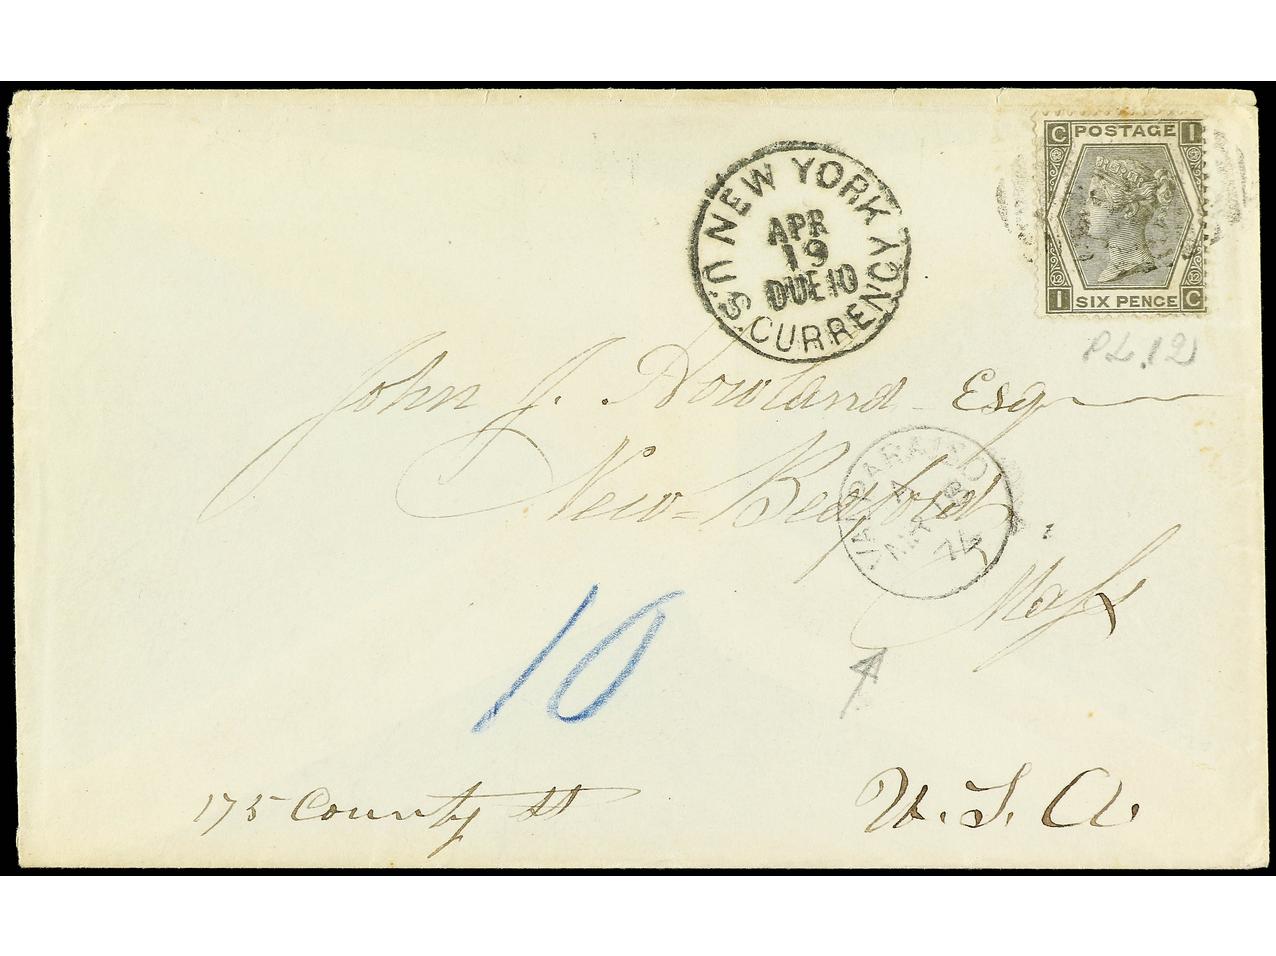 C POSTAGE I
I SIX PENCE C
12 12
NEW YORK
APR
19
DUE 10
U.S. CURRENCY
PL.12
John J. Howland Esq
New-Bedford.
Mass
VALPARAISO
A
MR 18
74
10
175 County St
U.S.A.